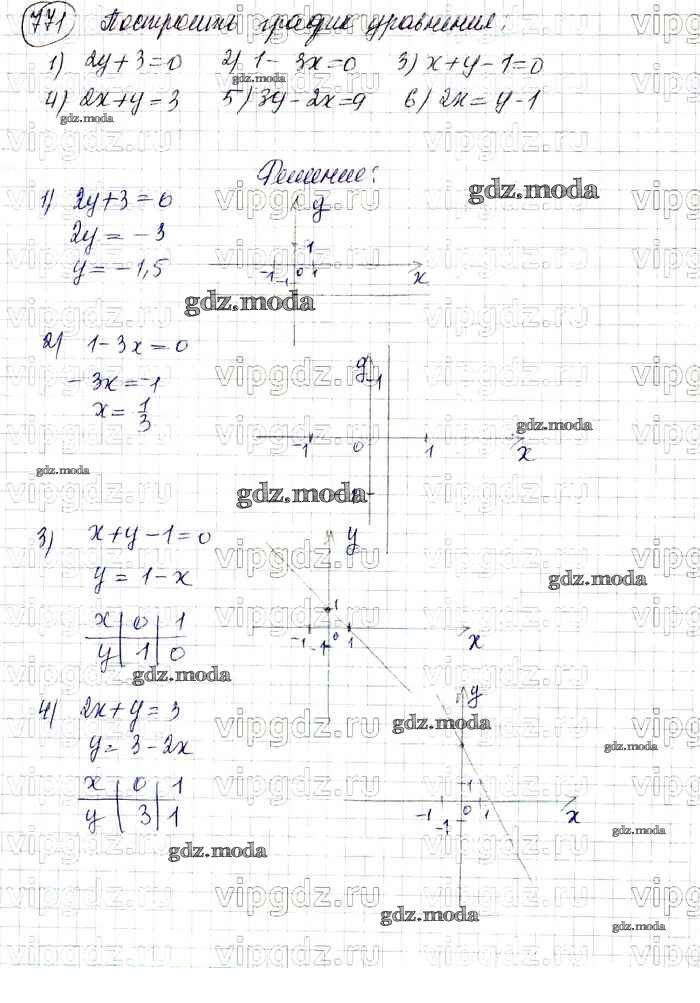 771 Построить график уравнения:
1) 2y+3=0 2) 1-3x=0 3) x+y-1=0
4) 2x+y=3 5) 3y-2x=9 6) 2x=y-1
Решение:
1) 2y+3=0
2y=-3
y=-1,5
y
1
-1 -1 0 1
x
2) 1-3x=0
-3x=-1
x=1/3
y
1
-1 0 1 x
3) x+y-1=0
y=1-x
x 0 1
y 1 0
y
1
-1 -1 0 1
x
4) 2x+y=3
y=3-2x
x 0 1
y 3 1
y
1
-1 0 1 x
-1
gdz.moda
vipgdz.ru